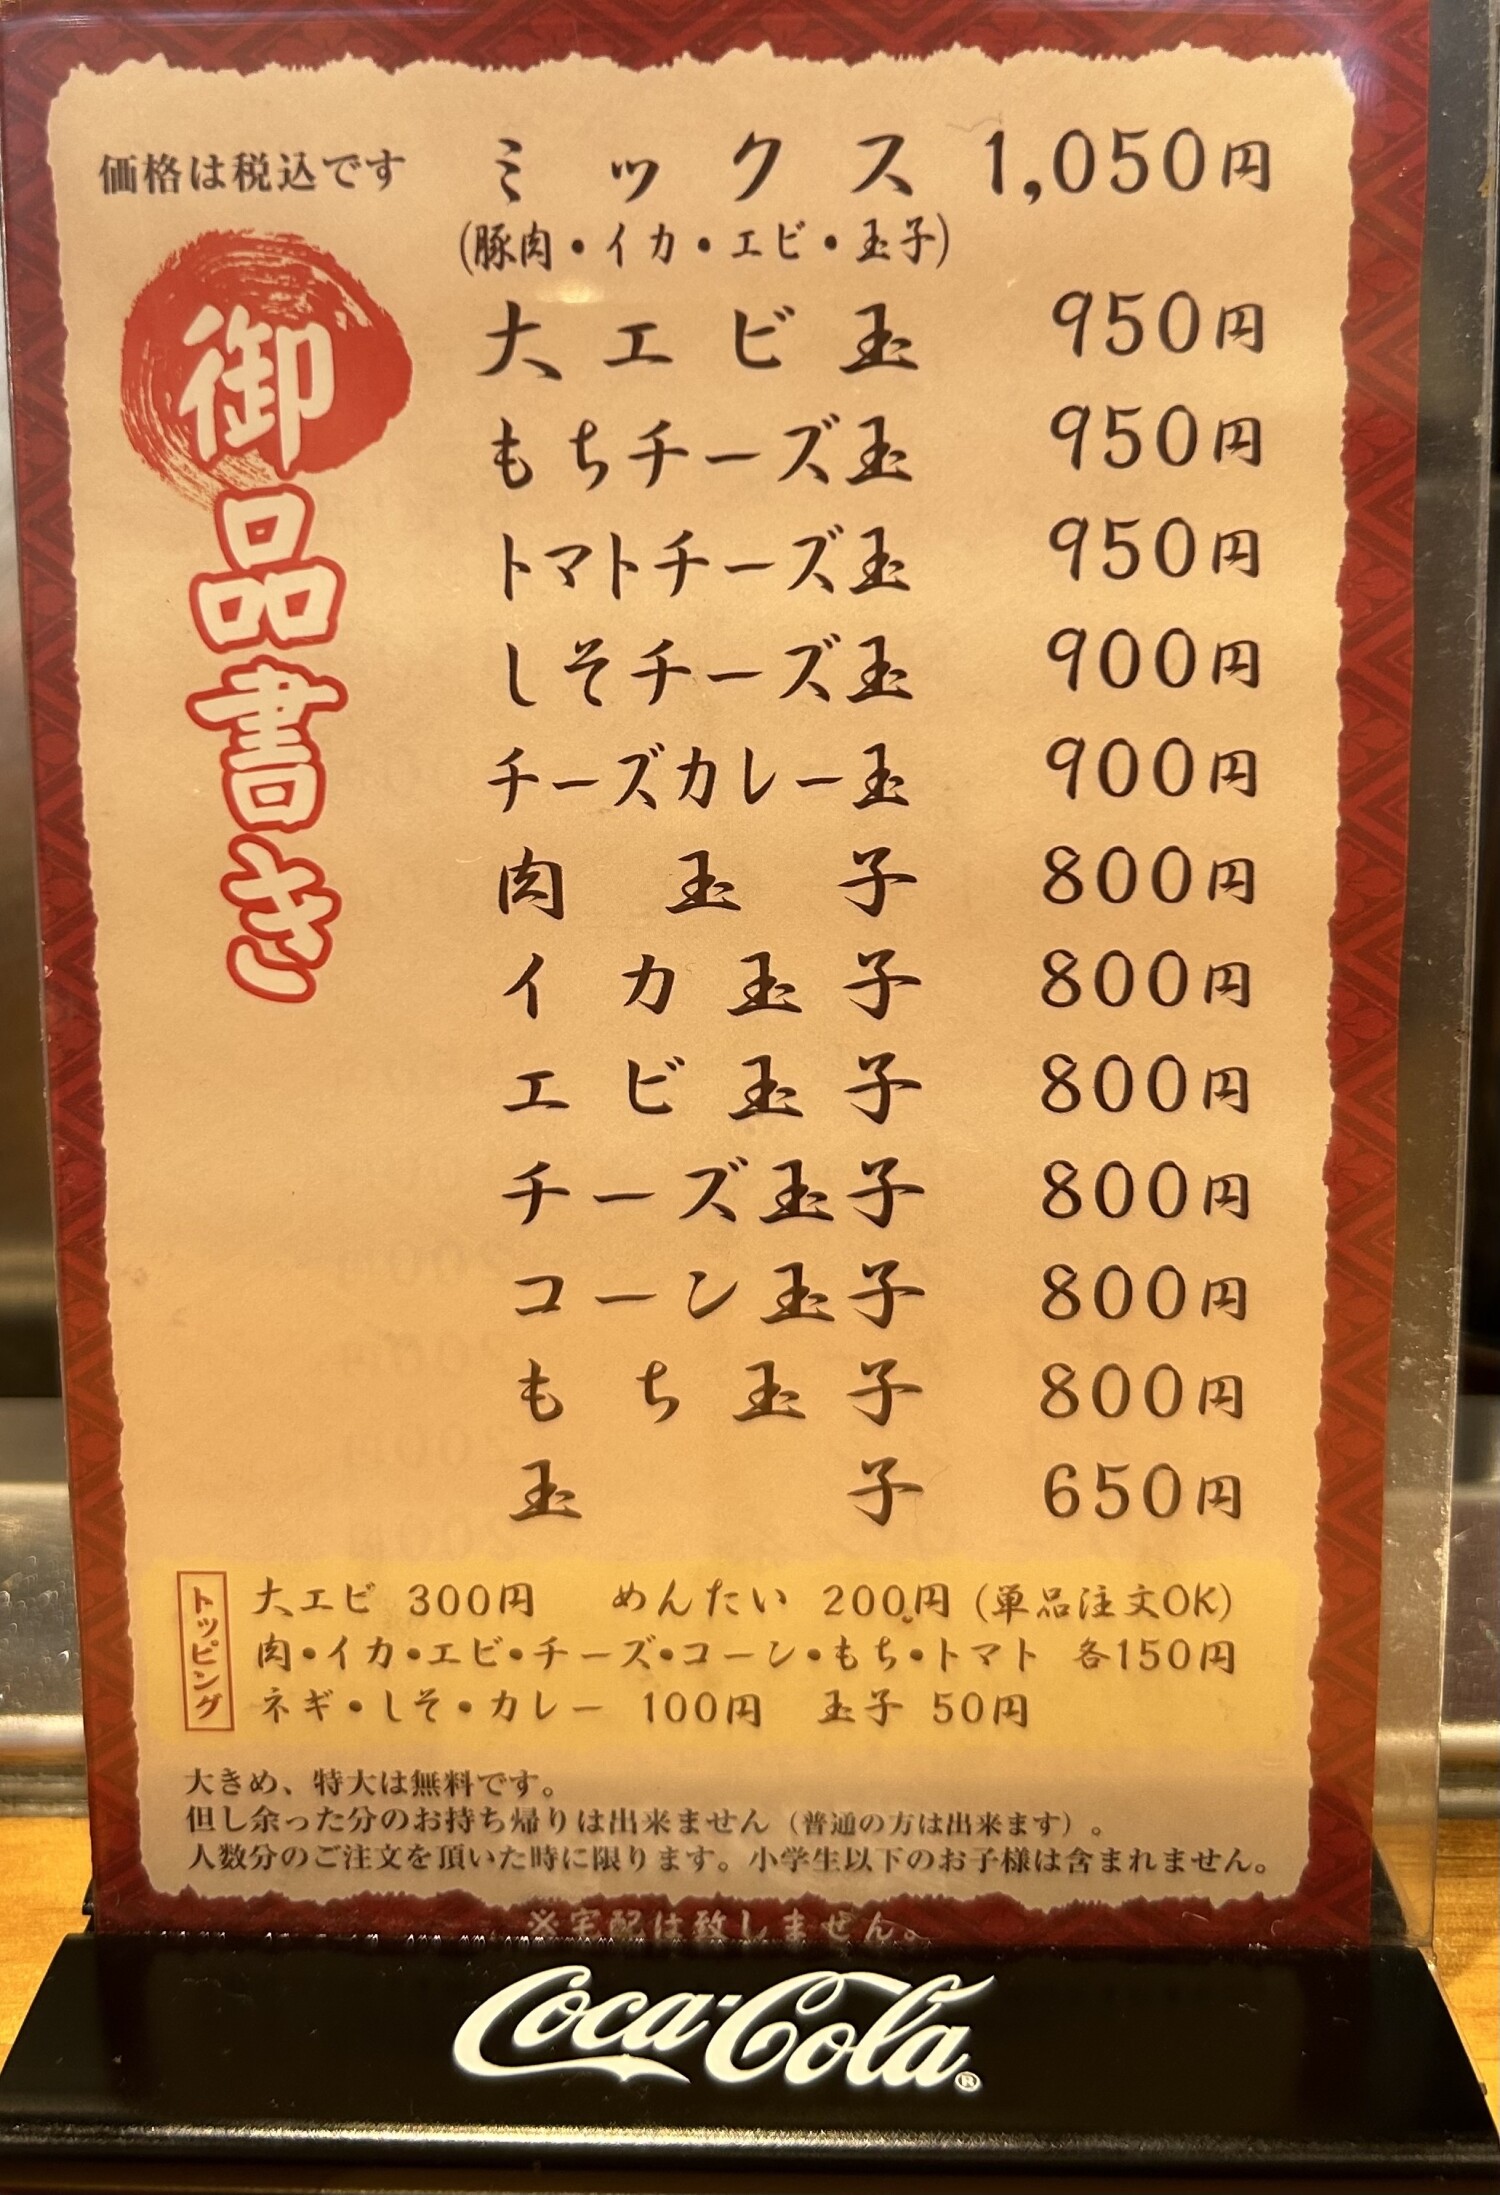 価格は税込です
御品書き
ミックス 1,050円
(豚肉・イカ・エビ・玉子)
大エビ玉 950円
もちチーズ玉 950円
トマトチーズ玉 950円
しそチーズ玉 900円
チーズカレー玉 900円
肉玉子 800円
イカ玉子 800円
エビ玉子 800円
チーズ玉子 800円
コーン玉子 800円
もち玉子 800円
玉子 650円
トッピング
大エビ 300円 めんたい 200円 (単品注文OK)
肉・イカ・エビ・チーズ・コーン・もち・トマト 各150円
ネギ・しそ・カレー 100円 玉子 50円
大きめ、特大は無料です。
但し余った分のお持ち帰りは出来ません（普通の方は出来ます）。
人数分のご注文を頂いた時に限ります。小学生以下のお子様は含まれません。
※宅配は致しません。
Coca-Cola®